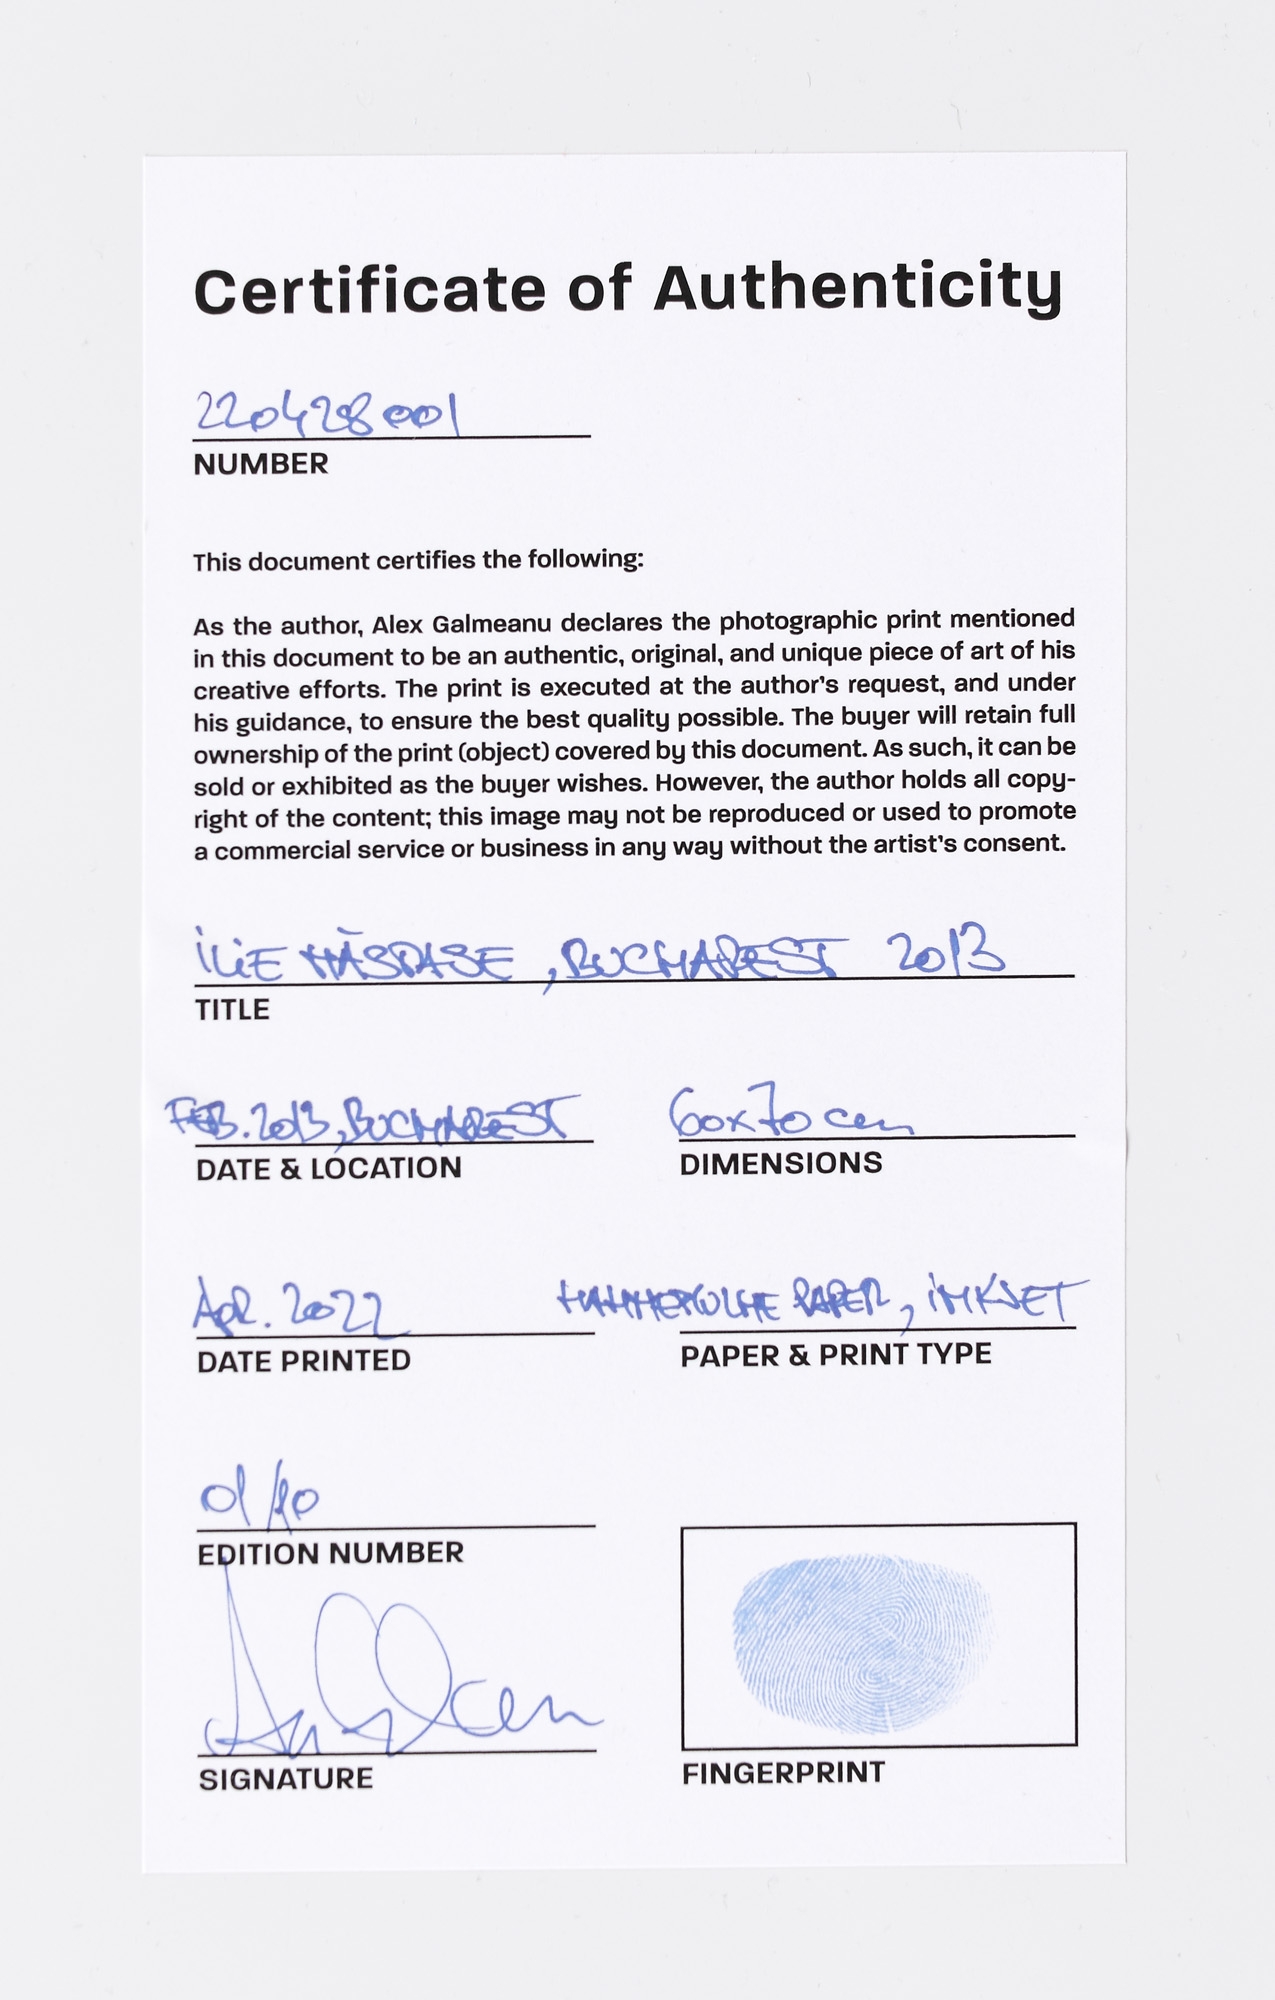 Certificate of Authenticity
220428001
NUMBER
This document certifies the following:
As the author, Alex Galmeanu declares the photographic print mentioned
in this document to be an authentic, original, and unique piece of art of his
creative efforts. The print is executed at the author's request, and under
his guidance, to ensure the best quality possible. The buyer will retain full
ownership of the print (object) covered by this document. As such, it can be
sold or exhibited as the buyer wishes. However, the author holds all copy-
right of the content; this image may not be reproduced or used to promote
a commercial service or business in any way without the artist's consent.
ILIE NĂSTASE, BUCHAREST 2013
TITLE
FEB. 2013, BUCHAREST 60x70 cm
DATE & LOCATION DIMENSIONS
Apr. 2022 PAPER, INKJET
DATE PRINTED PAPER & PRINT TYPE
01/10
EDITION NUMBER
SIGNATURE FINGERPRINT